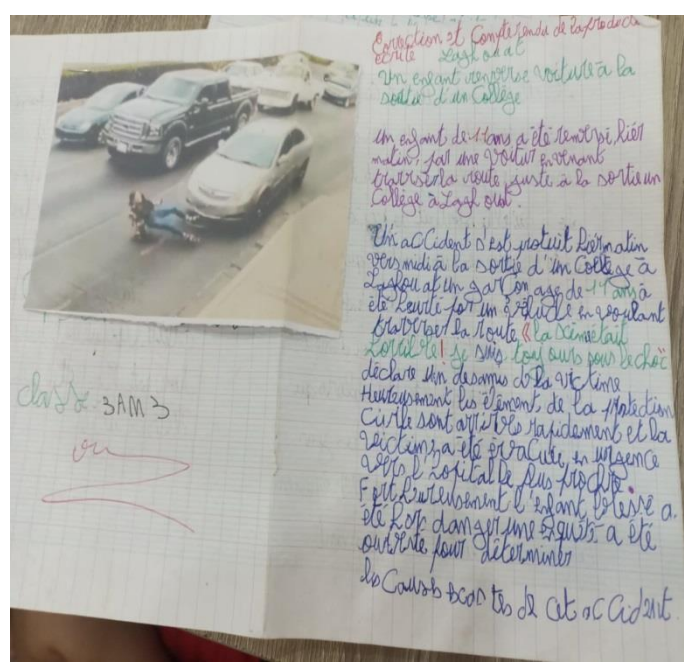 Correction et Compte rendu de la producti
écrite Laghouat
Un enfant renverse voiture à la
sortie d'un Collège
un enfant de 11 ans a été renversé, hier
matin, par une voitur en
traverser la route, juste à la sortie un
Collège à Laghouat.
Un acCident s'est protuit hier matin
vers midi à la sortie d'un Collège à
Laghouat un garçon age de 11 ans a
été heurté par un véhicule en voulant
traverser la route « la scin était
horrible ! je suis toujours sous le choc »
déclare un des amis de la victime
Heureusement les élément de la protection
Civile sont arrivés rapidement et la
victime a été évacuée en urgence
vers l'hopital le plus proche.
Fort heureusement l'enfant blessé a
été hors danger une enquête a été
ouverte pour déterminer
les Causes de Cet acCident.
classe 3AM3